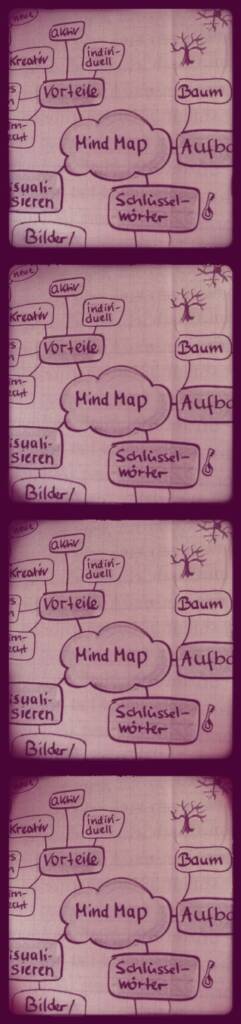 neue
aktiv
kreativ
indivi-
duell
Vorteile
Baum
Mind Map
Aufbo
isuali-
sieren
Schlüssel-
wörter
Bilder/
neue
aktiv
kreativ
indivi-
duell
Vorteile
Baum
Mind Map
Aufbo
isuali-
sieren
Schlüssel-
wörter
Bilder/
neue
aktiv
kreativ
indivi-
duell
Vorteile
Baum
Mind Map
Aufbo
isuali-
sieren
Schlüssel-
wörter
Bilder/
aktiv
kreativ
indivi-
duell
Vorteile
Baum
Mind Map
Aufbo
isuali-
sieren
Schlüssel-
wörter
Bilder/